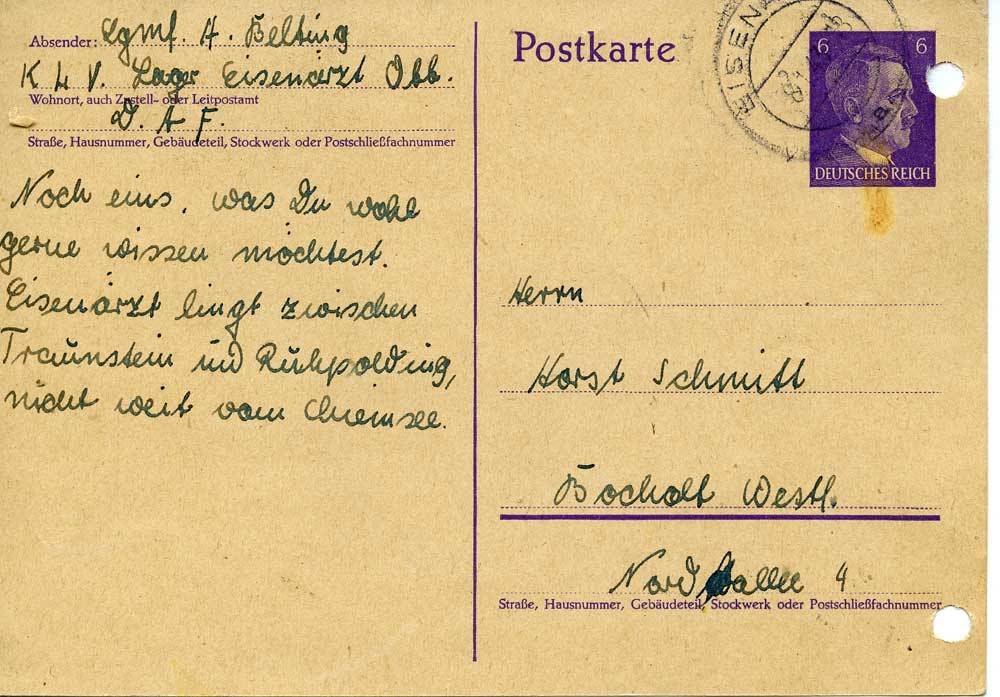 Absender: Lgmf. A. Belting
K L V. Lager Eisenärzt Obb.
Wohnort, auch Zustell- oder Leitpostamt
D. A F.
Straße, Hausnummer, Gebäudeteil, Stockwerk oder Postschließfachnummer
Noch eins, was Du wohl
gerne wissen möchtest.
Eisenärzt liegt zwischen
Traunstein und Ruhpolding,
nicht weit vom Chiemsee.
Postkarte
EISENÄ
6 6
DEUTSCHES REICH
Herrn
Horst Schmitt
Bocholt Westf.
Nordallee 4
Straße, Hausnummer, Gebäudeteil, Stockwerk oder Postschließfachnummer